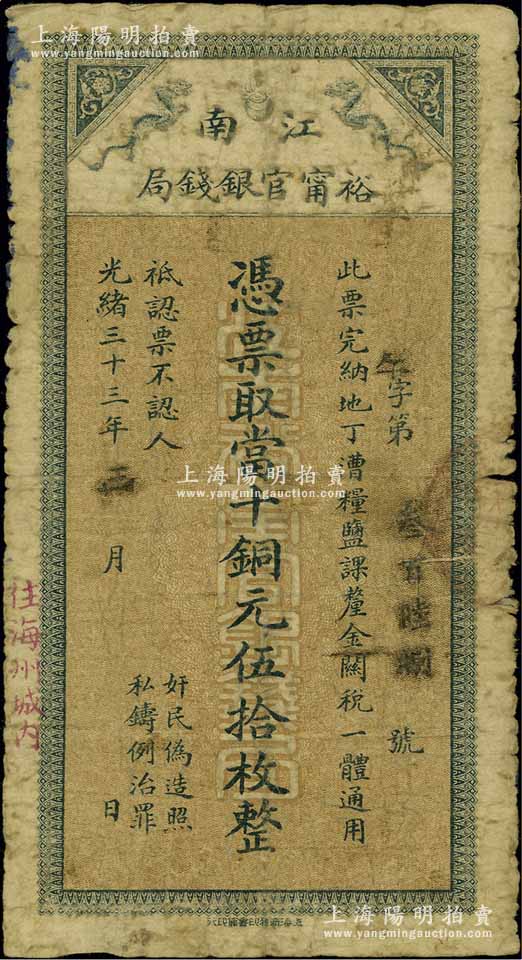 上海陽明拍賣
www.yangmingauction.com
江南
裕甯官銀錢局
字第 叁百陸 號
此票完納地丁漕糧鹽課釐金關稅一體通用
憑票取當十銅元伍拾枚整
祗認票不認人
光緒三十三年二月 日
奸民偽造照
私鑄例治罪
住海州城內
上海陽明拍賣
www.yangmingauction.com
上海陽明拍賣
www.yangmingauction.com